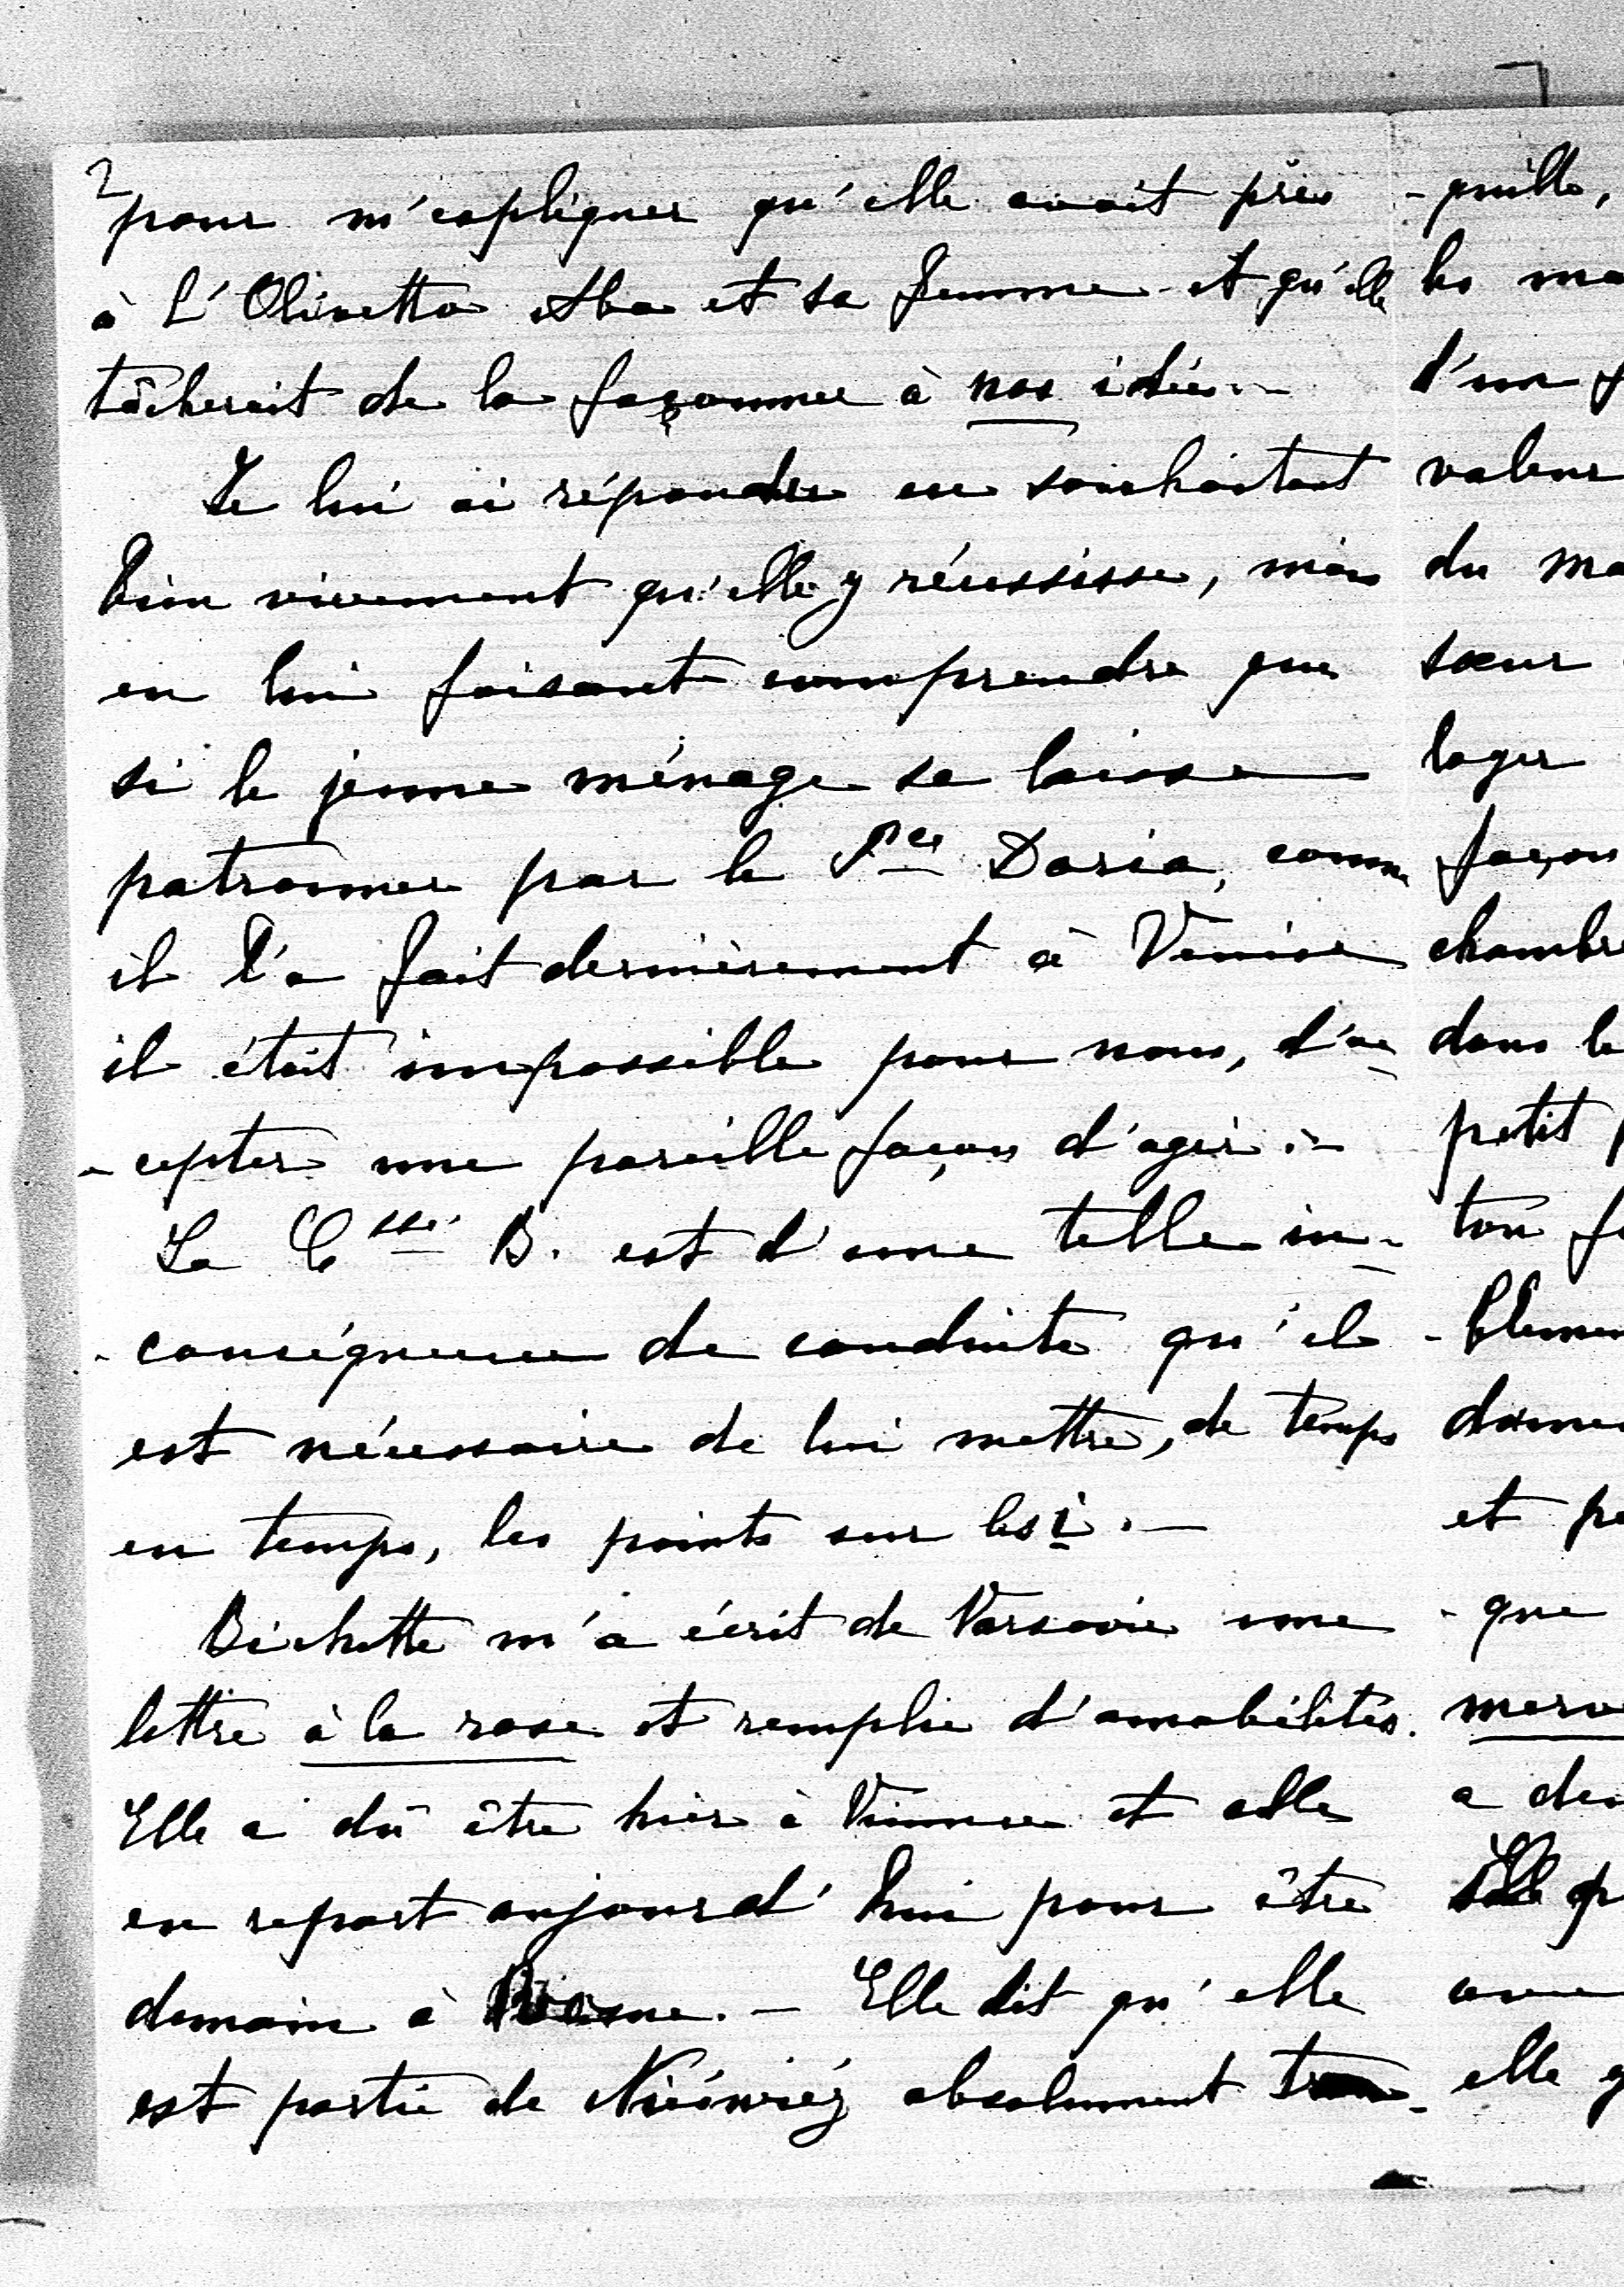 2
pour m'expliquer qu'elle avait près
à L'Olivetta Aba et sa femme et qu'elle
tâcherait de la façonner à nos idées. -
Je lui ai répondu en souhaitant
bien vivement qu'elle y réussisse, mais
en lui faisant comprendre que
si le jeune ménage se laisse
patronner par le Pce Doria, comme
il l'a fait dernièrement à Venise
il était impossible pour nous, d'ac
- cepter une pareille façon d'agir. -
La Csse B. est d'une telle in-
- conséquence de conduite qu'il
est nécessaire de lui mettre, de temps
en temps, les points sur les i. -
Bichette m'a écrit de Varsovie une
lettre à la rose et remplie d'amabilités.
Elle a dû être hier à Vienne et elle
en repart aujourd'hui pour être
demain à Rome. - Elle dit qu'elle
est partie de Niéświéz absolument tran-
- quille,
les ma
d'une f
valeur
du ma
sœur
loger
façon
chambre
dans le
petit p
ton f
- blemen
dame
et pe
- que
merv
a de
Elle
avec
elle g